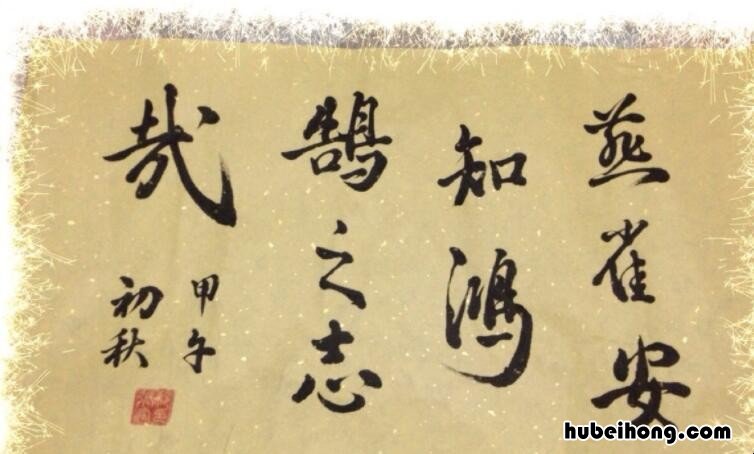 燕雀安
知鸿
鹄之志
哉
甲午
初秋
hubeihong.com